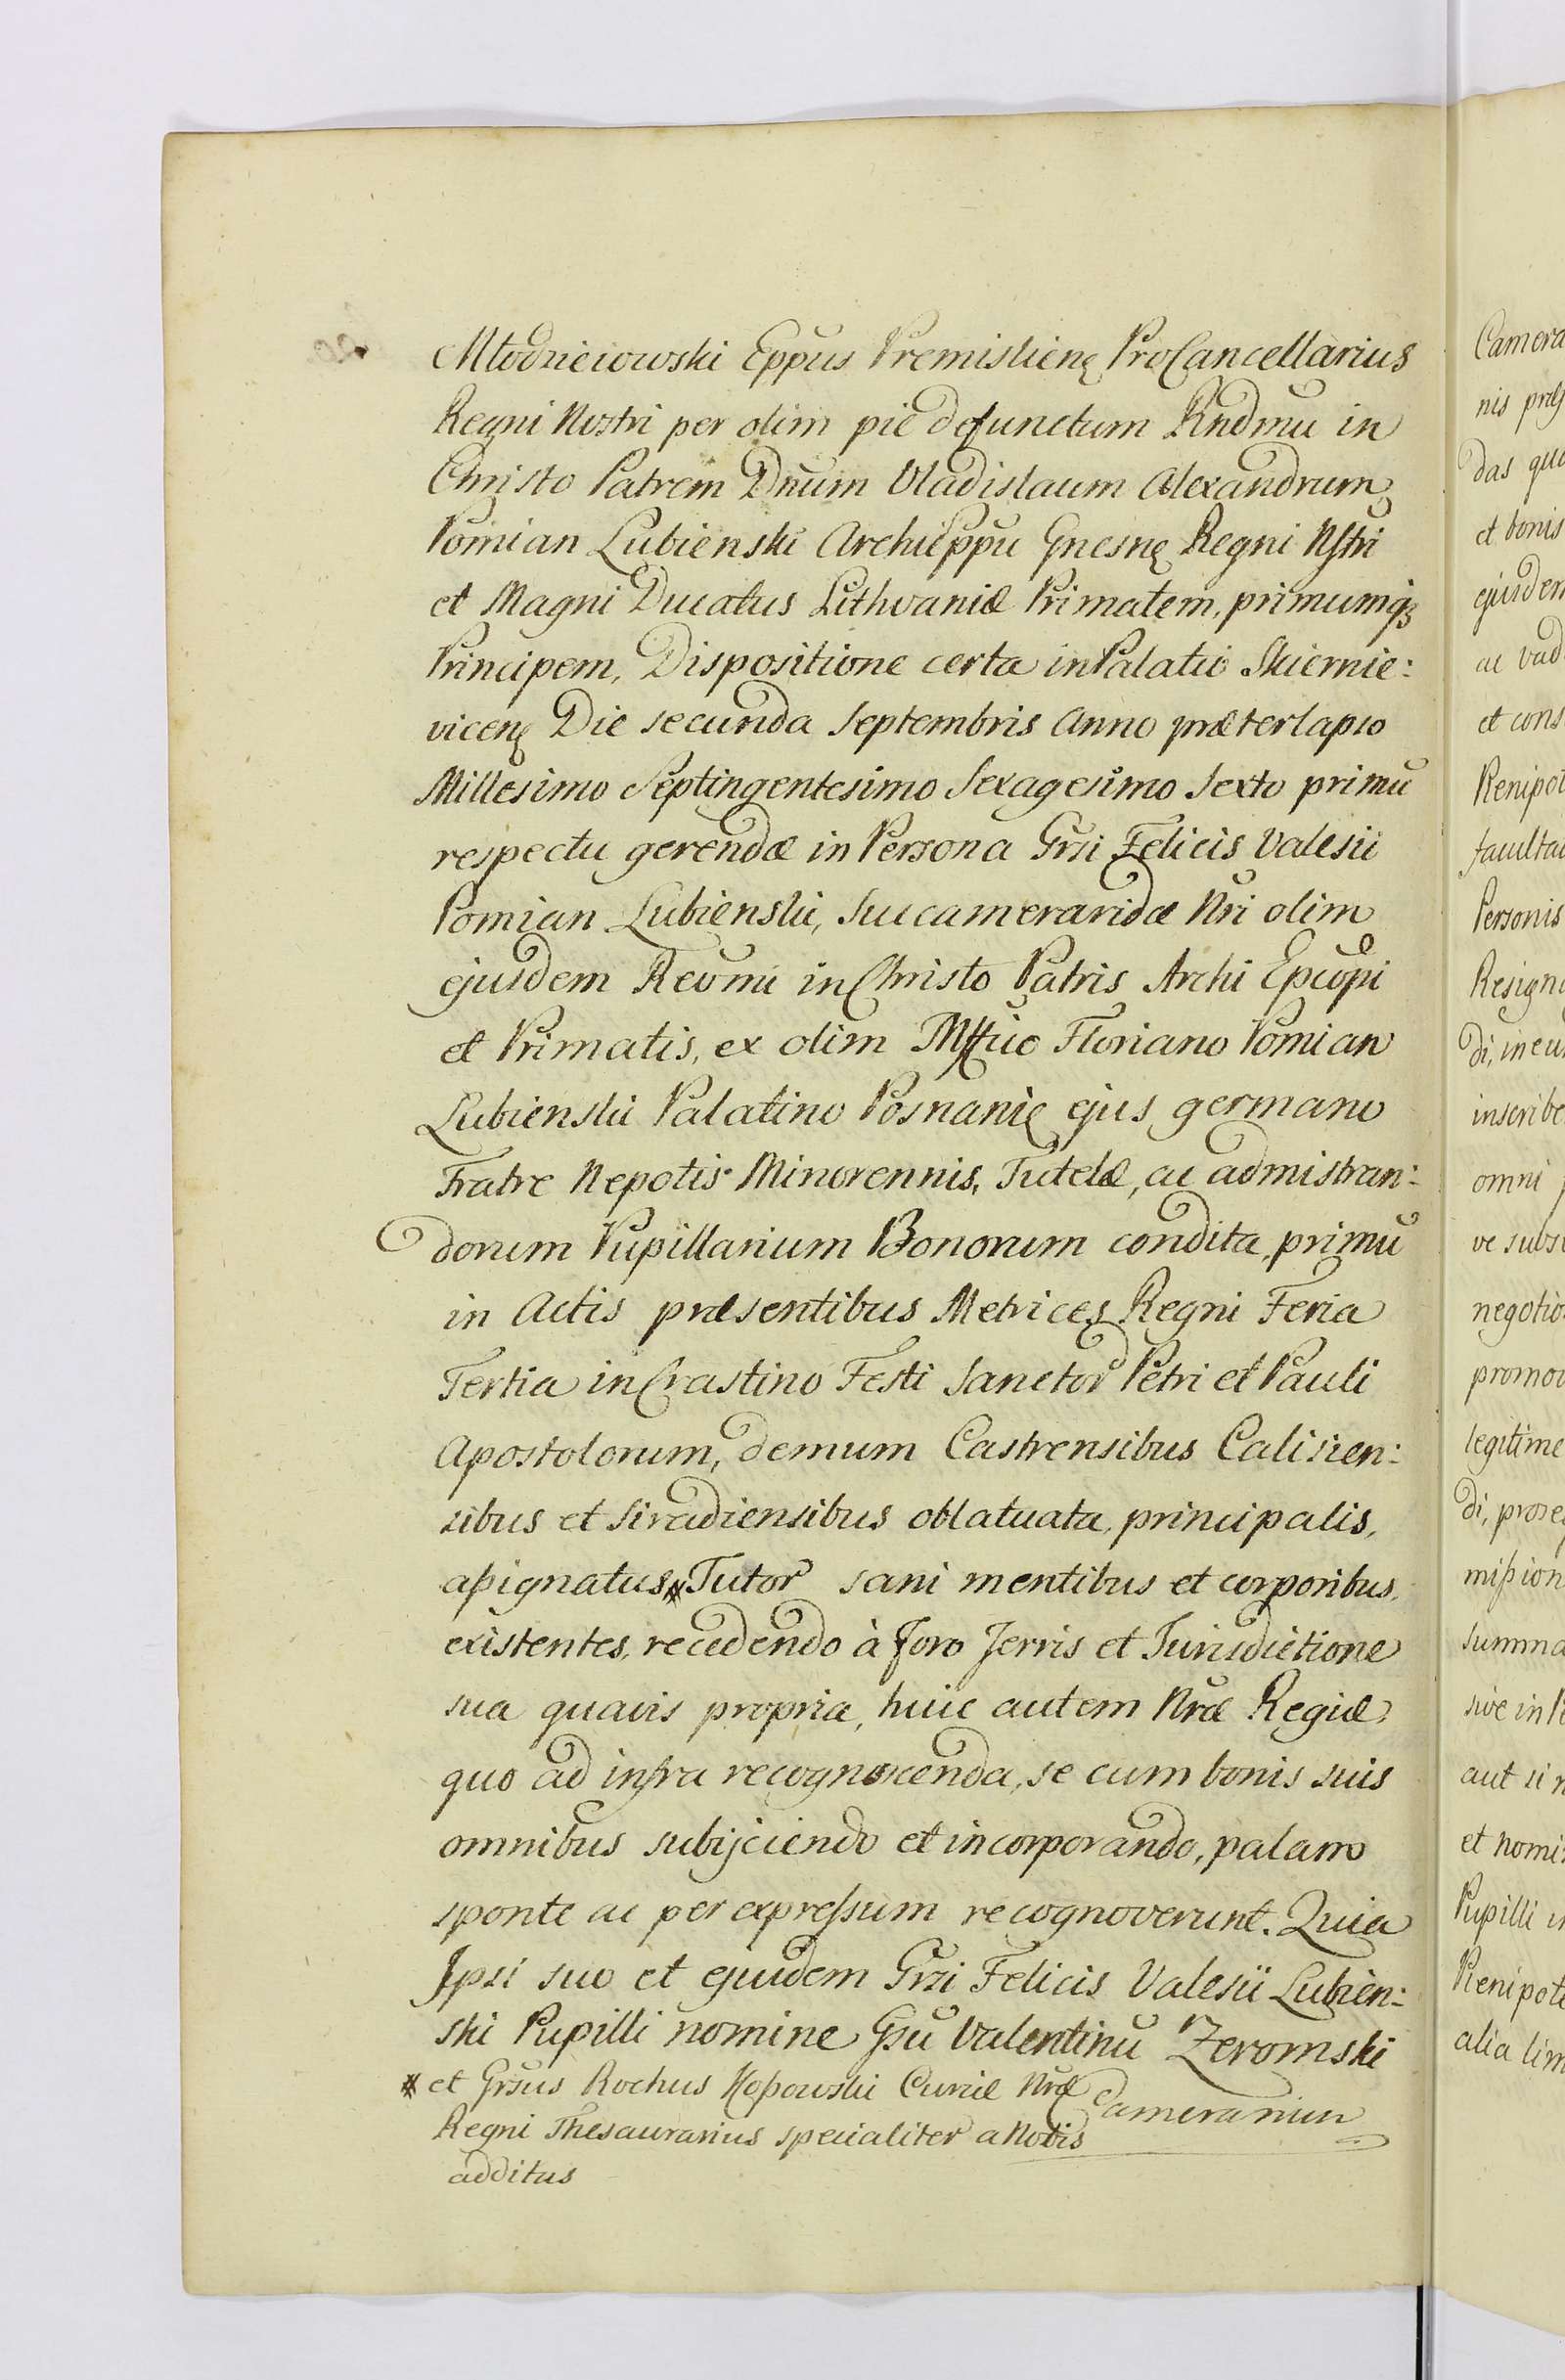 Młodzieiowski Eppus Premislienę ProCancellarius
Regni Nostri per olim pié defunctum Rndmū in
Christo Patrem Dnum Vladislaum Alexandrum
Pomian Lubienski Archieppū Gnesnę Regni Nstri
et Magni Ducatus Lithvaniæ Primatem, primumq3
Principem, Dispositione certa in Palatio Skiernie:
vicenę Die secunda Septembris Anno præterlapso
Millesimo Septingentesimo Sexagesimo Sexto primū
respectu gerendæ in Persona Grsi Felicis Valesii
Pomian Lubienski, Succameraridæ Nri olim
ejusdem Revmi in Christo Patris Archi Epcopi
et Primatis, ex olim Mffico Floriano Pomian
Lubienski Palatino Posnanię ejus germano
Fratre Nepotis Minorennis, Tutelæ, ac admistran:
dorum Pupillarium Bonorum condita, primū
in Actis præsentibus Metrices Regni Feria
Tertia in Crastino Festi Sanctor Petri et Pauli
Apostolorum, demum Castrensibus Calisien:
sibus et Siradiensibus oblatuata, principalis,
aßignatus * Tutor sani mentibus et corporibus
existentes, recedendo à Foro Terris et Jurisdictione
sua quavis propria, huic autem Nræ Regiæ
quo ad infra recognoscenda, se cum bonis suis
omnibus subijciendo et incorporando, palam
sponte ac per expressum recognoverunt. Quia
Ipsi suo et ejusdem Grsi Felicis Valesii Lubien:
ski Pupilli nomine Gsū Valentinū Zeromski
* et Grsus Rochus Koßowski Curiæ Nræ
Regni Thesaurarius specialiter a Nobis
additus
Camerarium
Camera
nis præs
das qua
et bonis
ejusdem
ac vad
et cons
Plenipot
facultat
Personis
Resigna
di, in eu
inscribe
omni
ve subs
negotio
promov
legitime
di, proseq
mißion
summa
sive in
aut si n
et nomi
Pupilli
Plenipote
alia lim